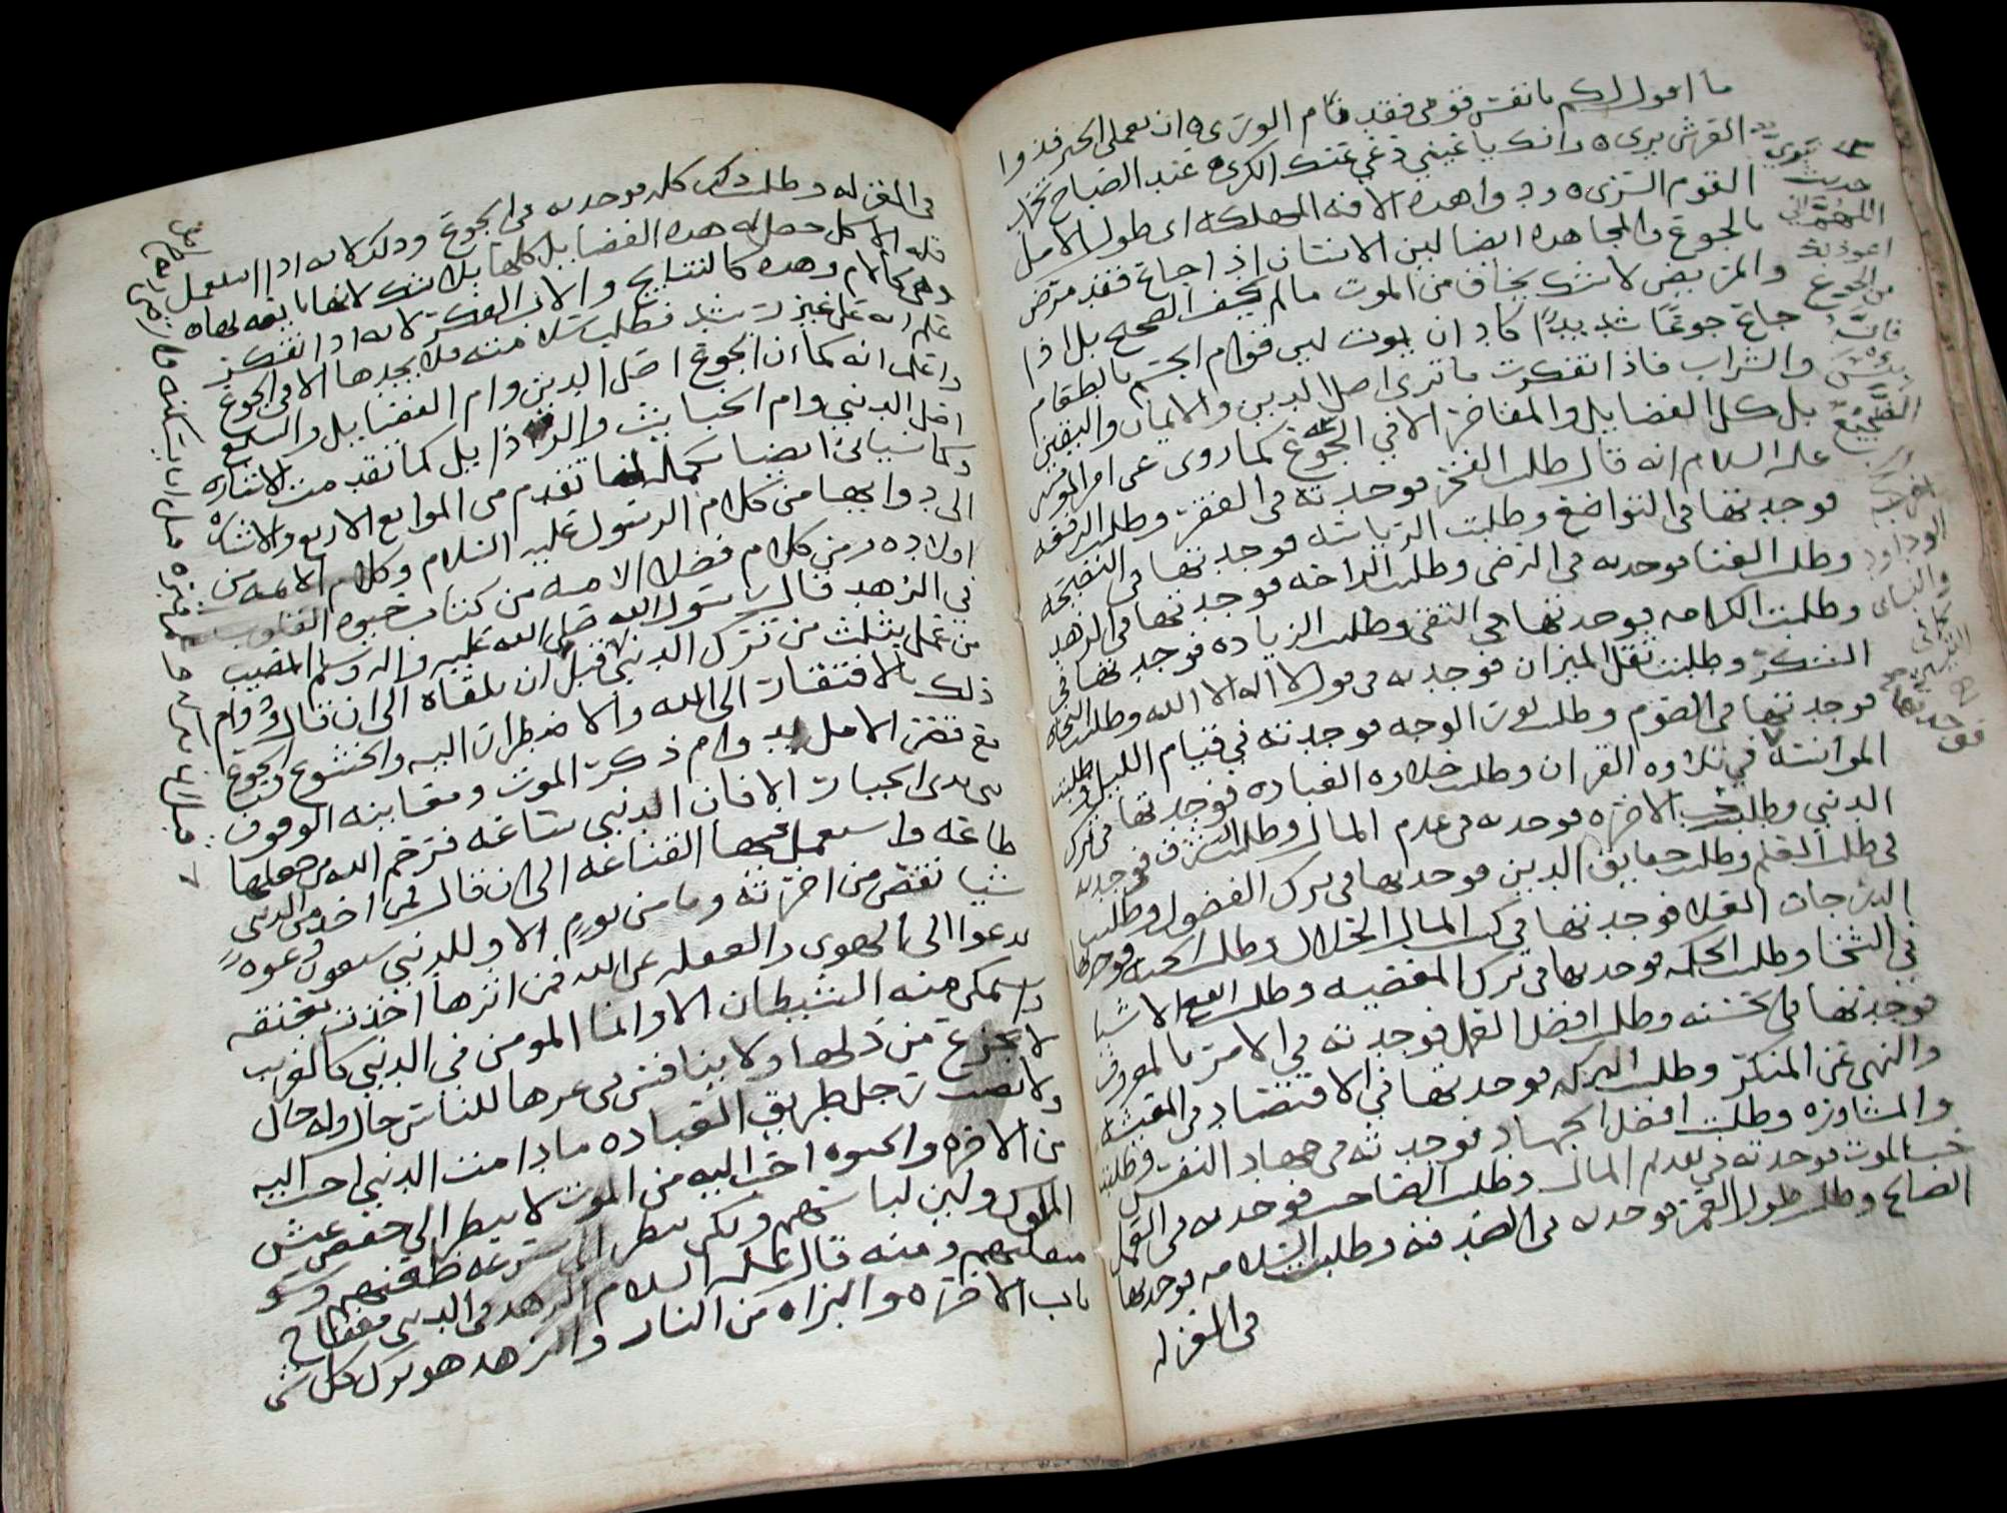 ما اقول لكم يا نفس قومي فقد نام الورى ه ان تعملي الخير فذوا
العرش يرى ه وانت يا عيني دعي عنك الكرى ه عند الصباح تحمد
القوم السرى ه ودوا هذه الافه المهلكه اى طول الامل
بالجوع والمجاهده ايضا لين الانسان اذا جاع فقد مرض
والمريض لا شك يخاف من الموت ما لم يخف الصحيح بل اذا
جاع جوعًا شديدًا كاد ان يموت لين قوام الجسم بالطعام
والشراب فاذا تفكرت ما ترى اصل الدين والايمان واليقين
بل كل الفضايل والمفاخر الا في الجوع كما روى عن امير المومنين
عليه السلام انه قال طلبت الفخر فوجدته في الفقر وطلبت الرفعه
فوجدتها في التواضع وطلبت الرياسه فوجدتها في النصيحه
وطلبت الغنا فوجدته في الرضى وطلبت الراحه فوجدتها في الزهد
وطلبت الكرامه فوجدتها في التقى وطلبت الزياده فوجدتها في
الشكر وطلبت ثقل الميزان فوجدته في قول لا اله الا الله وطلبت النجاه
فوجدتها في الصوم وطلبت نور الوجه فوجدته في قيام الليل وطلبت
الموانسه في تلاوه القران وطلبت حلاوه العباده فوجدتها في ترك
الدنيى وطلبت حب الاخره فوجدته في عدم المال وطلبت الشرف فوجدته
في طلب العلم وطلبت حقايق الدين فوجدتها في ترك الفضول وطلبت
الدرجات العلا فوجدتها في كسب المال الحلال وطلبت الجنه فوجدتها
في السخا وطلبت الحكمه فوجدتها في ترك المعصيه وطلبت الاشيا
فوجدتها وطلبت افضل العمل فوجدته في الامر بالمعروف
والنهي عن المنكر وطلبت البركه فوجدتها في الاقتصاد في المعيشه
والمشاوره وطلبت افضل الجهاد فوجدته في جهاد النفس وطلبت
حب الموت فوجدته في تقديم المال وطلبت الصاحب فوجدته في العمل
الصالح وطلبت طول العمر فوجدته في الصدقه وطلبت السلامه فوجدتها
في العزله
حديث
اللهم اني
اعوذ بك
من الجوع
فانه
بئس
الضجيع
اخرجه
ابو داود
والنسائي
في العزله وطلبت ذلك كله فوجدته في الجوع وذلك لانه اذا استعمل
قله الاكل حصل له هذه الفضايل كلها بلا شك لانها تابعه لهذه
وهي كالام وهذه كالنتايج والان الفكر لانه اذا تفكر
علم انه على غير رشد فطلب سلامته فلا يجدها الا في الجوع
واعلم انه كما ان الجوع اصل الدين وام الفضايل والشبع
اصل الدنيى وام الخبايث والرذايل كما تقدمت الاشاره
وكما سياتي ايضا تكمله لما تقدم من الموانع الاربع والاشاره
الى دوايها من كلام الرسول عليه السلام وكلام الائمه من
اولاده ومن كلام فضلا الامه من كتاب حيوه القلوب
في الزهد قال رسول الله صلى الله عليه واله وسلم المصيب
من عمل بثلث من ترك الدنيى قبل ان تلقاه الى ان قال ودوام
ذلك بالافتقار الى الله والاضطرار اليه والخشوع والجوع
مع قصر الامل بدوام ذكر الموت ومعاينه الوقوف
بين يدى الجبار الا فان الدنيى ساعه فرحم الله من جعلها
طاعه واستعمل فيها القناعه الى ان قال فمن اخذ من الدنيى
شيا نقص من اخرته وما من يوم الا وللدنيى سبعون دعوه
تدعوا الى الهوى والغفله عن الله فمن اثرها اخذت بعنقه
واستمكن منه الشيطان الا وانما المومن في الدنيى كالغريب
لا يجزع من ذلها ولا ينافس في عزها للناس حال وله حال
ولا يصبر رجل طريق العباده ما دامت الدنيى احب اليه
من الاخره والحيوه احب اليه من الموت لا ينظر الى خفض عيش
الملوك ولين لباسهم ولكن ينظر الى سرعه ظعنهم وسو
منقلبهم ومنه قال عليه السلام الزهد في الدنيى مفتاح
باب الاخره والبراه من النار والزهد هو ترك كل شى